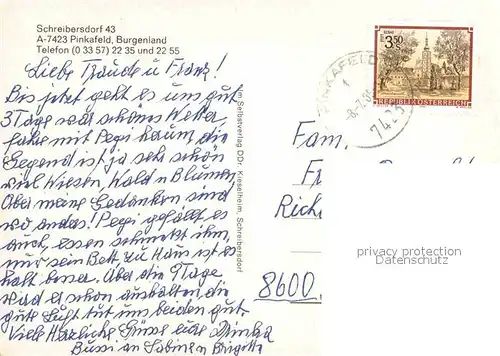 Schreibersdorf 43
A-7423 Pinkafeld, Burgenland
Telefon (0 33 57) 22 35 und 22 55
Liebe Traude u Franz!
Bis jetzt geht es uns gut
3 Tage war schönes Wetter,
fahre mit Pepi herum, die
Gegend ist ja sehr schön
viel Wiesen, Wald u Blumen,
Aber meine Gedanken sind
wo anders! Pepi gefällt es
auch, essen schmeckt ihm,
nur sein Bett zu Haus ist es
halt besser. Aber die Tage
wird er schon aushalten, die
gute Luft tut uns beiden gut
Viele Herzliche Grüsse eure
Bussi an Sabine u Brigitta
Im Selbstverlag DDr. Kieselheim, Schreibersdorf
PINKAFELD
1
7423
3.50
REPUBLIK ÖSTERREICH
Fam.
8600
privacy protection
www.ansichtskartenversand.com